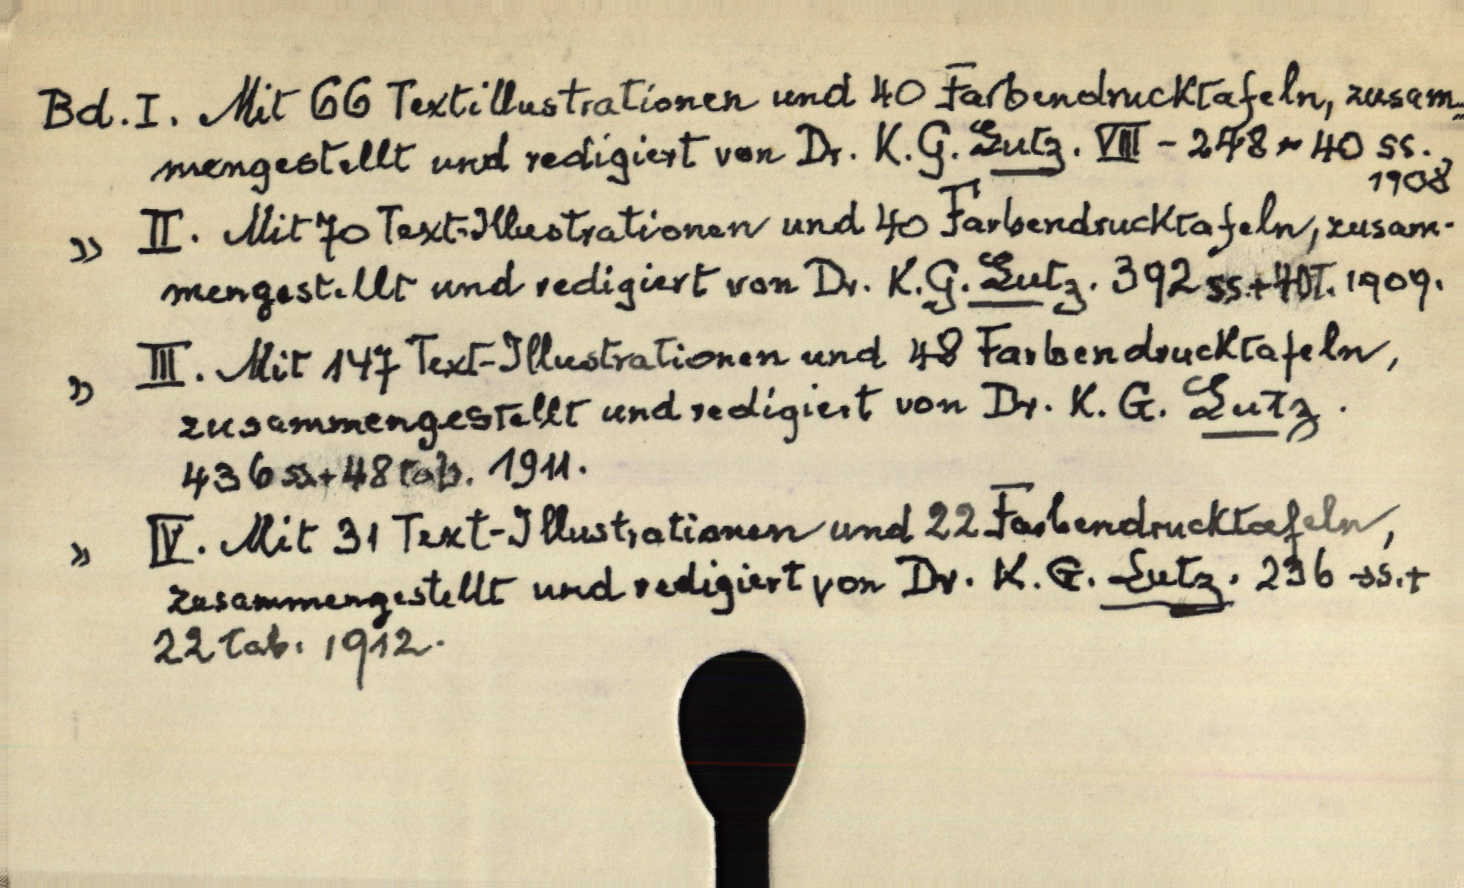 Bd. I. Mit 66 Textillustrationen und 40 Farbendrucktafeln, zusam-
mengestellt und redigiert von Dr. K. G. Lutz. VIII - 248 - 40 ss.
1908
" II. Mit 70 Text-Illustrationen und 40 Farbendrucktafeln, zusam-
mengestellt und redigiert von Dr. K. G. Lutz. 392 ss. + 40 T. 1909.
" III. Mit 147 Text-Illustrationen und 48 Farbendrucktafeln,
zusammengestellt und redigiert von Dr. K. G. Lutz.
436 ss. + 48 tab. 1911.
" IV. Mit 31 Text-Illustrationen und 22 Farbendrucktafeln,
zusammengestellt und redigiert von Dr. K. G. Lutz. 236 ss. +
22 tab. 1912.